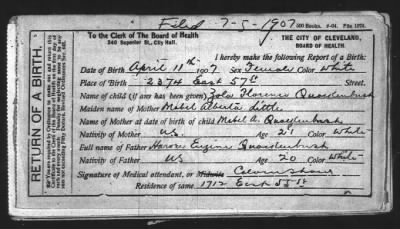 Filed 7-5-1907
500 Books. 9-04. File 1270.
To the Clerk of The Board of Health
240 Superior St., City Hall.
THE CITY OF CLEVELAND,
BOARD OF HEALTH.
RETURN OF A BIRTH.
I hereby make the following Report of a Birth:
Date of Birth April 11th 1907 Sex Female Color White
Place of Birth 2374 East 57th Street.
Name of child (if any has been given) Zola Florence Quackenbush
Maiden name of Mother Mabel Alberta Little
Name of Mother at date of birth of child Mabel A. Quackenbush
Nativity of Mother U.S. Age 21 Color White
Full name of Father Eugene Quackenbush
Nativity of Father US Age 20 Color White
Signature of Medical attendant, or Midwife
Residence of same. 1712 East 55 St